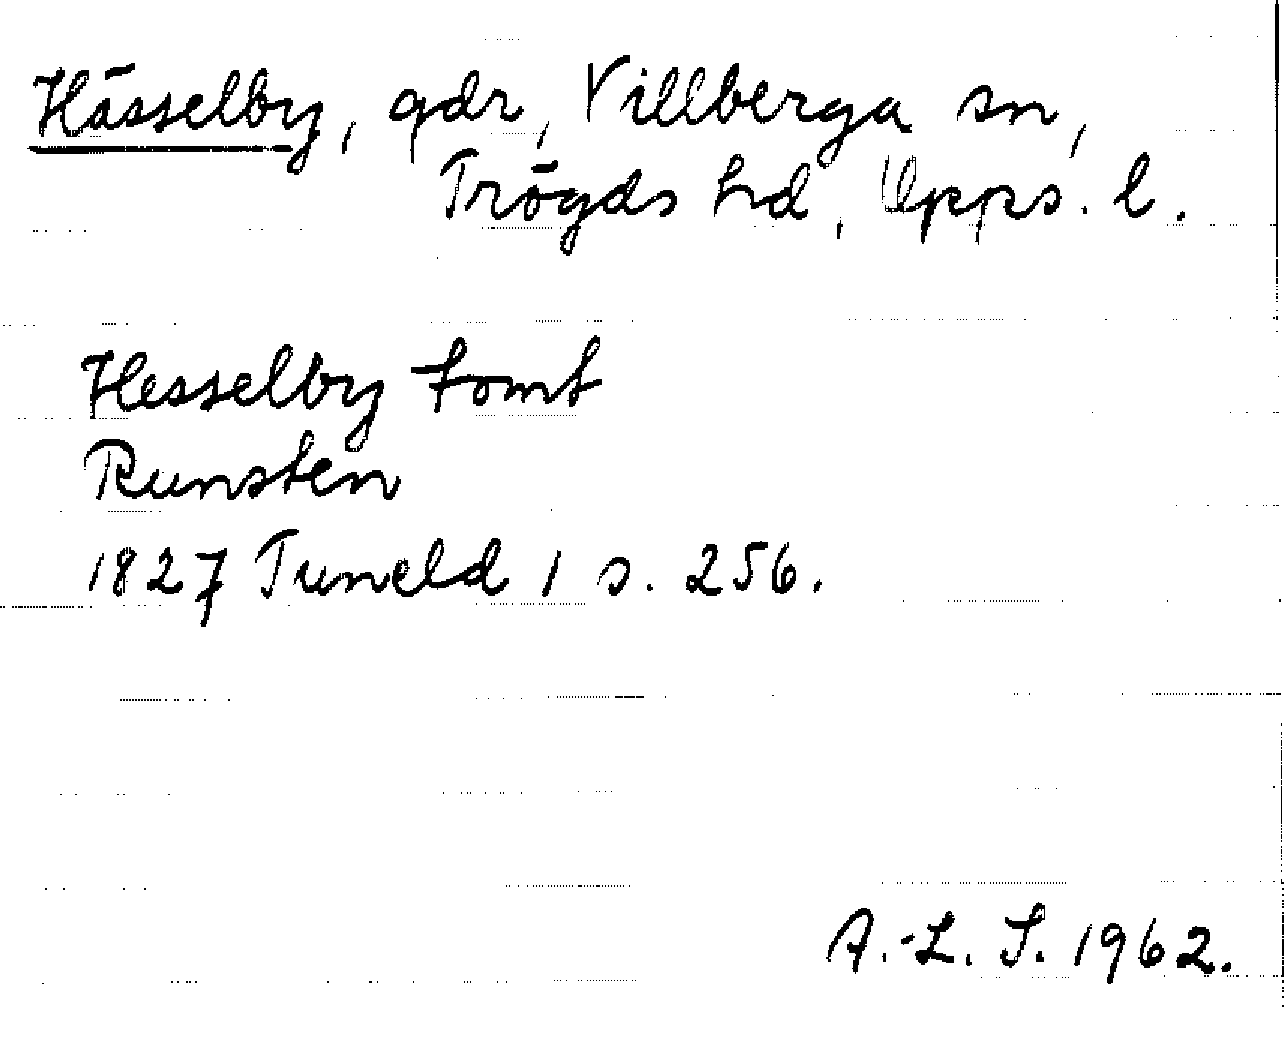 Hässelby, gdr, Villberga sn,
Trögds hd, Upps. l.
Hesselby tomt
Runsten
1827 Tuneld 1 s. 256.
A.-L. S. 1962.